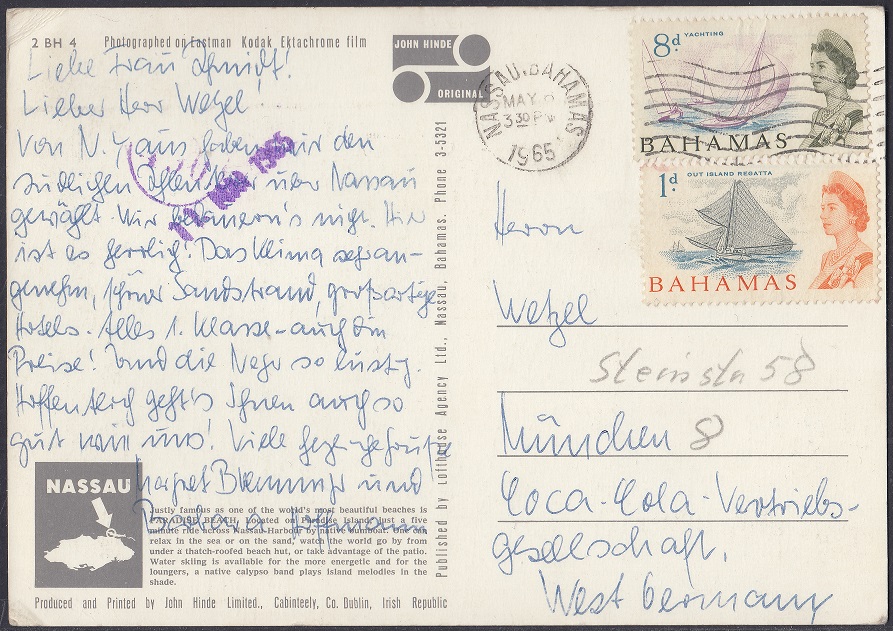 2 BH 4 Photographed on Eastman Kodak Ektachrome film
JOHN HINDE
ORIGINAL
Liebe Frau Schmidt!
Lieber Herr Wetzel!
Von N.Y. aus haben wir den
südlichen über Nassau
gewählt. Wir nicht. Hier
ist es herrlich! Das Klima sehr an-
genehm, schöner Sandstrand, großartige
Hotels. Alles 1. Klasse - auch im
Preise! Und die Neger so lustig.
Hoffentlich geht's Ihnen auch so
gut wie uns! Viele
Margret und
Hoffmann
NASSAU
Justly famous as one of the world's most beautiful beaches is
PARADISE BEACH, located on Paradise Island, just a five
minute ride across Nassau Harbour by native bumboat. One can
relax in the sea or on the sand, watch the world go by from
under a thatch-roofed beach hut, or take advantage of the patio.
Water skiing is available for the more energetic and for the
loungers, a native calypso band plays island melodies in the
shade.
Produced and Printed by John Hinde Limited., Cabinteely, Co. Dublin, Irish Republic
Published by Lofthouse Agency Ltd., Nassau, Bahamas. Phone 3-5321
NASSAU, BAHAMAS
MAY
3 30 PM
1965
8d YACHTING
BAHAMAS
1d OUT ISLAND REGATTA
BAHAMAS
Herrn
Wetzel
58
München 8
Coca-Cola-Vertriebs-
gesellschaft.
West Germany